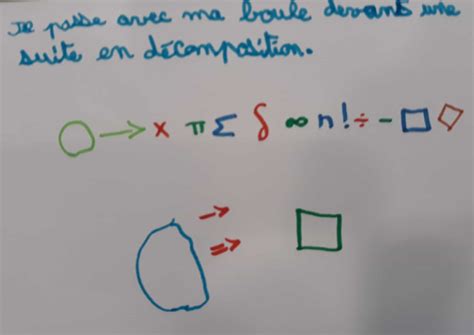 Je passe avec ma boule devant une
suite en décomposition.
○ → × π Σ δ ∞ n! ÷ - □ ◇
→
⇒ □